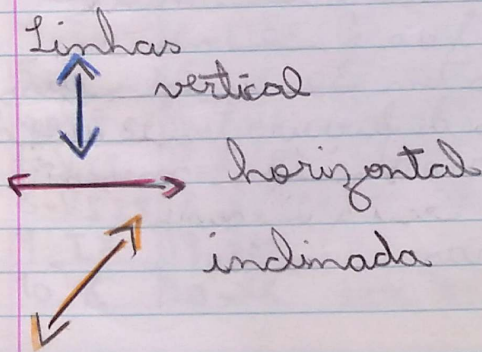 Linhas
vertical
horizontal
inclinada